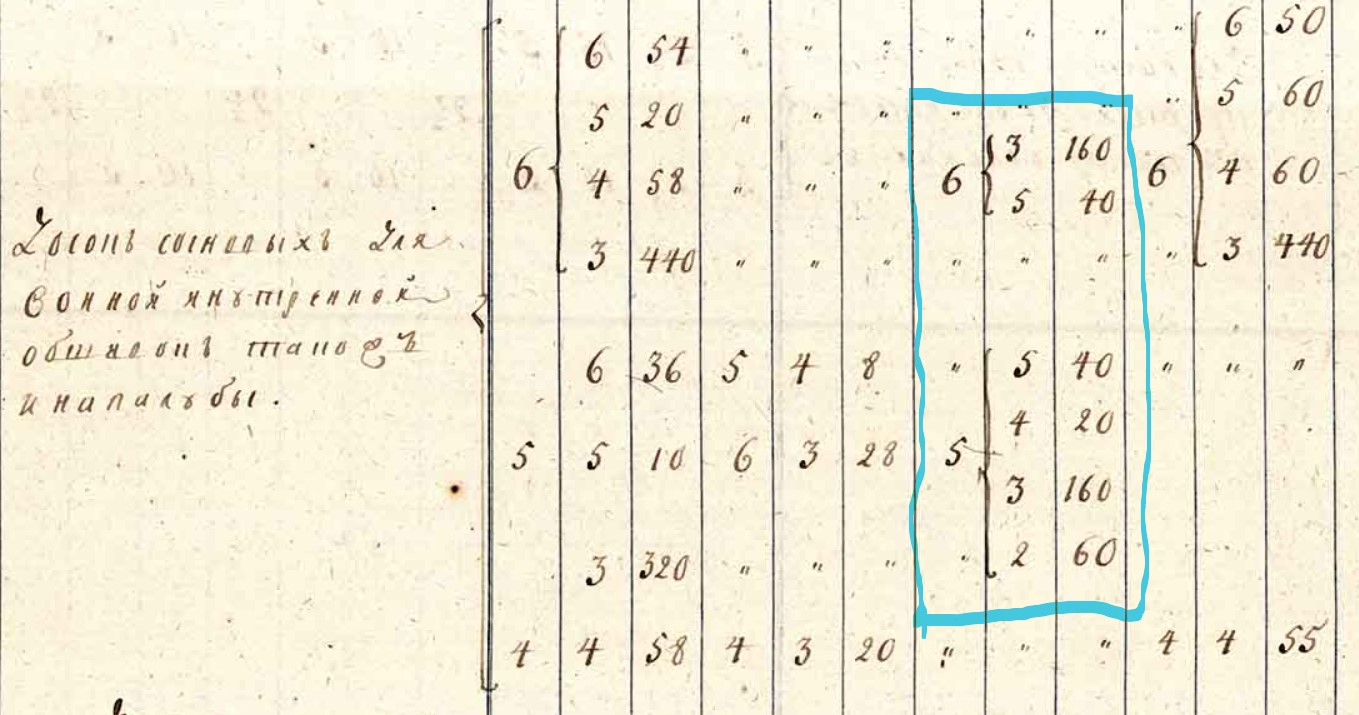 6 50
6 54 " " " " " " "
5 60
5 20 " " " " " " "
3 160
6 4 58 " " " 6 6 4 60
5 40
Досокъ сосновыхъ для
3 440 " " " " " " " 3 440
вонной внутренной
обшивокъ
6 36 5 4 8 " 5 40 " " "
и на палубы.
4 20
5 5 10 6 3 28 5
3 160
3 320 " " " " 2 60
4 4 58 4 3 20 " " " 4 4 55